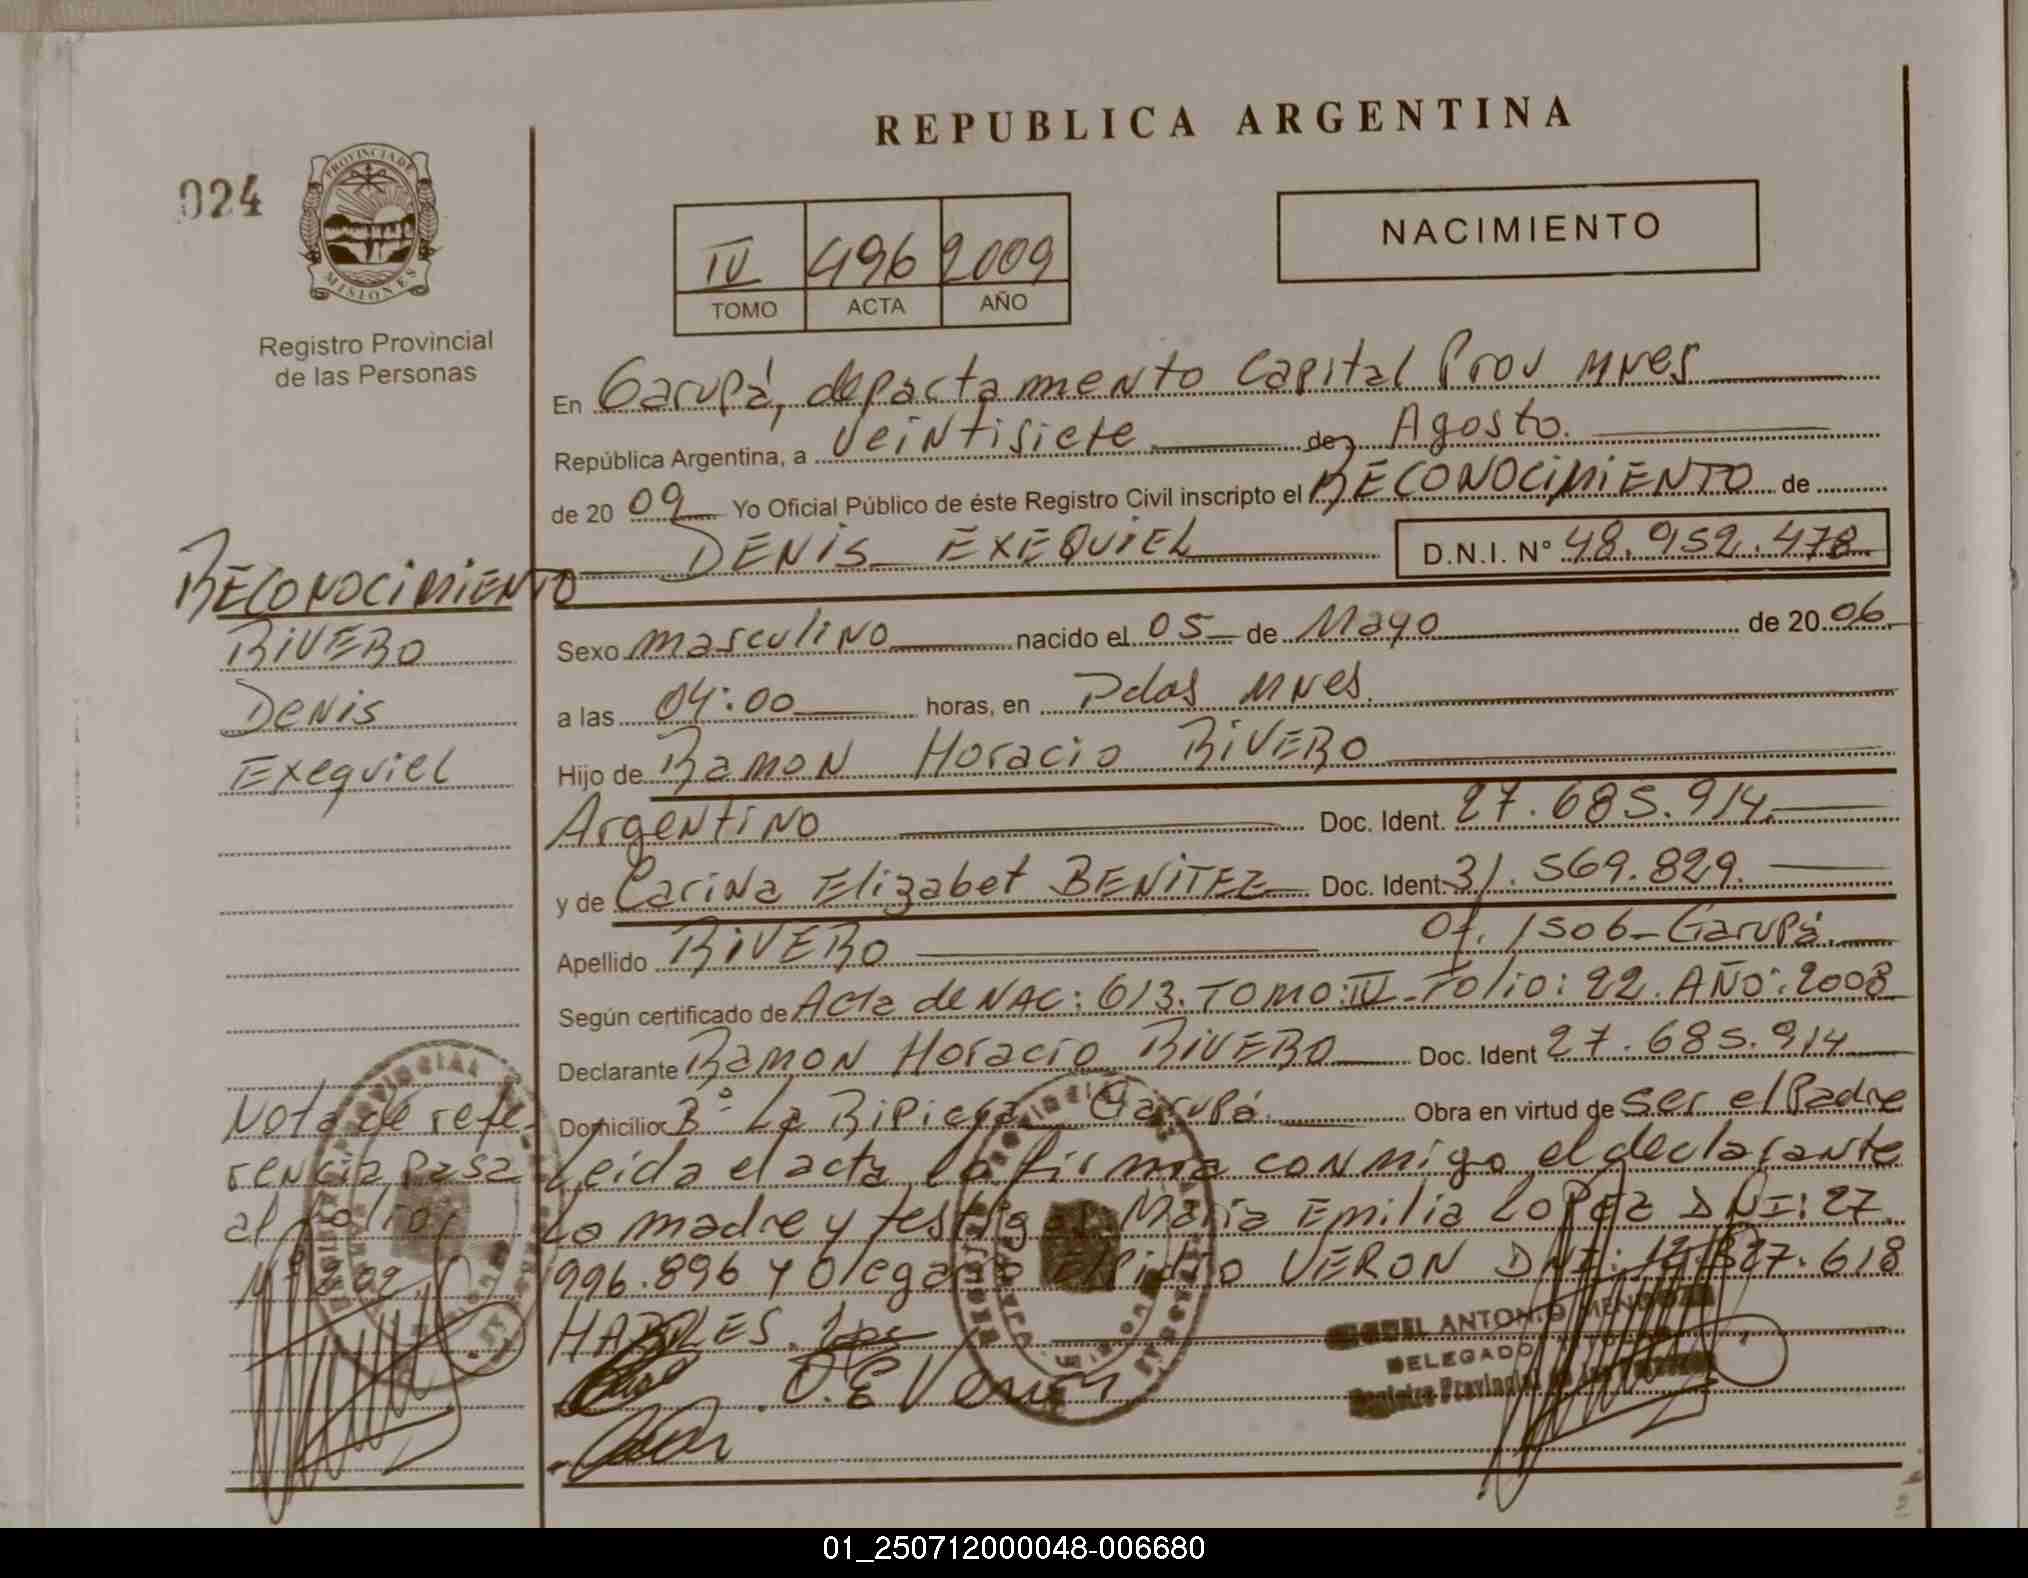 REPUBLICA ARGENTINA
024
PROVINCIA DE
MISIONES
Registro Provincial
de las Personas
IV 496 2009
TOMO ACTA AÑO
NACIMIENTO
En Garupá, departamento Capital Prov Mnes
República Argentina, a veintisiete de Agosto.
de 20 09 Yo Oficial Público de éste Registro Civil inscripto el RECONOCIMIENTO de
DENIS EXEQUIEL D.N.I. N° 48.952.478
RECONOCIMIENTO
RIVERO
Denis
Exequiel
Sexo masculino nacido el 05 de Mayo de 20 06
a las 04:00 horas, en Pdas Mnes.
Hijo de Ramon Horacio RIVERO
Argentino Doc. Ident. 27.685.914.
y de Carina Elizabet BENITEZ Doc. Ident. 31.569.829.
Apellido RIVERO Of. 1506-Garupá.
Según certificado de Acta de NAC: 613. TOMO: IV-Folio: 22. AÑO: 2008
Declarante Ramon Horacio RIVERO Doc. Ident 27.685.914
Domicilio B° La Ripiera Garupá. Obra en virtud de ser el Padre
Leida el acta, la firma conmigo el declarante
La madre y testigos Maria Emilia LOPEZ DNI: 27.
996.896 y Olegario Elpidio VERON DNI: 827.618
O. E Veron
ANTONIO MENDOZA
DELEGADO
Registro Provincial de las
Nota de refe-
rencia pasa
al folio
01_250712000048-006680